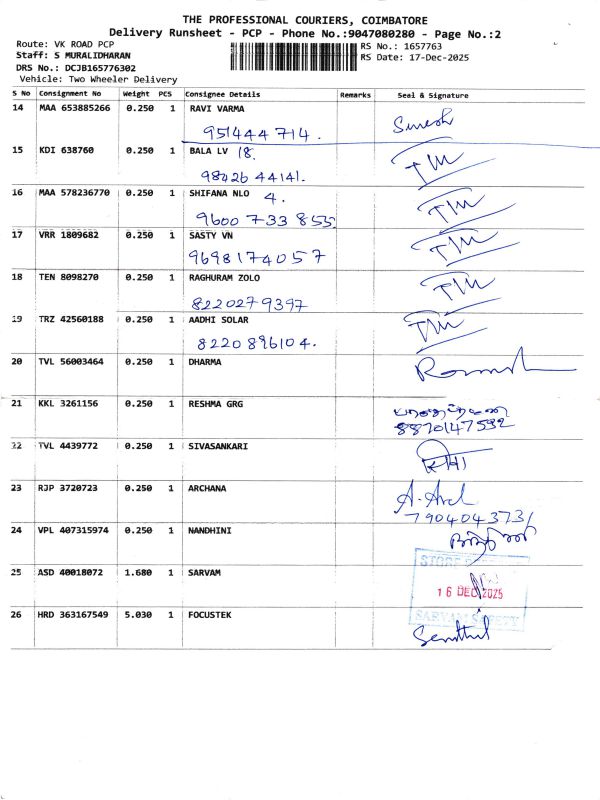 THE PROFESSIONAL COURIERS, COIMBATORE
Delivery Runsheet - PCP - Phone No.:9047080280 - Page No.:2
Route: VK ROAD PCP
Staff: S MURALIDHARAN
DRS No.: DCJB165776302
Vehicle: Two Wheeler Delivery
RS No.: 1657763
RS Date: 17-Dec-2025
S No Consignment No Weight PCS Consignee Details Remarks Seal & Signature
14 MAA 653885266 0.250 1 RAVI VARMA
951444 714. Suresh
15 KDI 638760 0.250 1 BALA LV 18. TM
98426 44141.
16 MAA 578236770 0.250 1 SHIFANA NLO 4. TM
9600 733 855.
17 VRR 1809682 0.250 1 SASTY VN TM
9698174057
18 TEN 8098270 0.250 1 RAGHURAM ZOLO TM
8220279397
19 TRZ 42560188 0.250 1 AADHI SOLAR TM
8220 896104.
20 TVL 56003464 0.250 1 DHARMA
21 KKL 3261156 0.250 1 RESHMA GRG
8870147592
22 TVL 4439772 0.250 1 SIVASANKARI
23 RJP 3720723 0.250 1 ARCHANA A. Arcl
7904043731
24 VPL 407315974 0.250 1 NANDHINI
25 ASD 40018072 1.680 1 SARVAM
STORE
16 DEC 2025
SARVAM SAFETY
26 HRD 363167549 5.030 1 FOCUSTEK Senthil